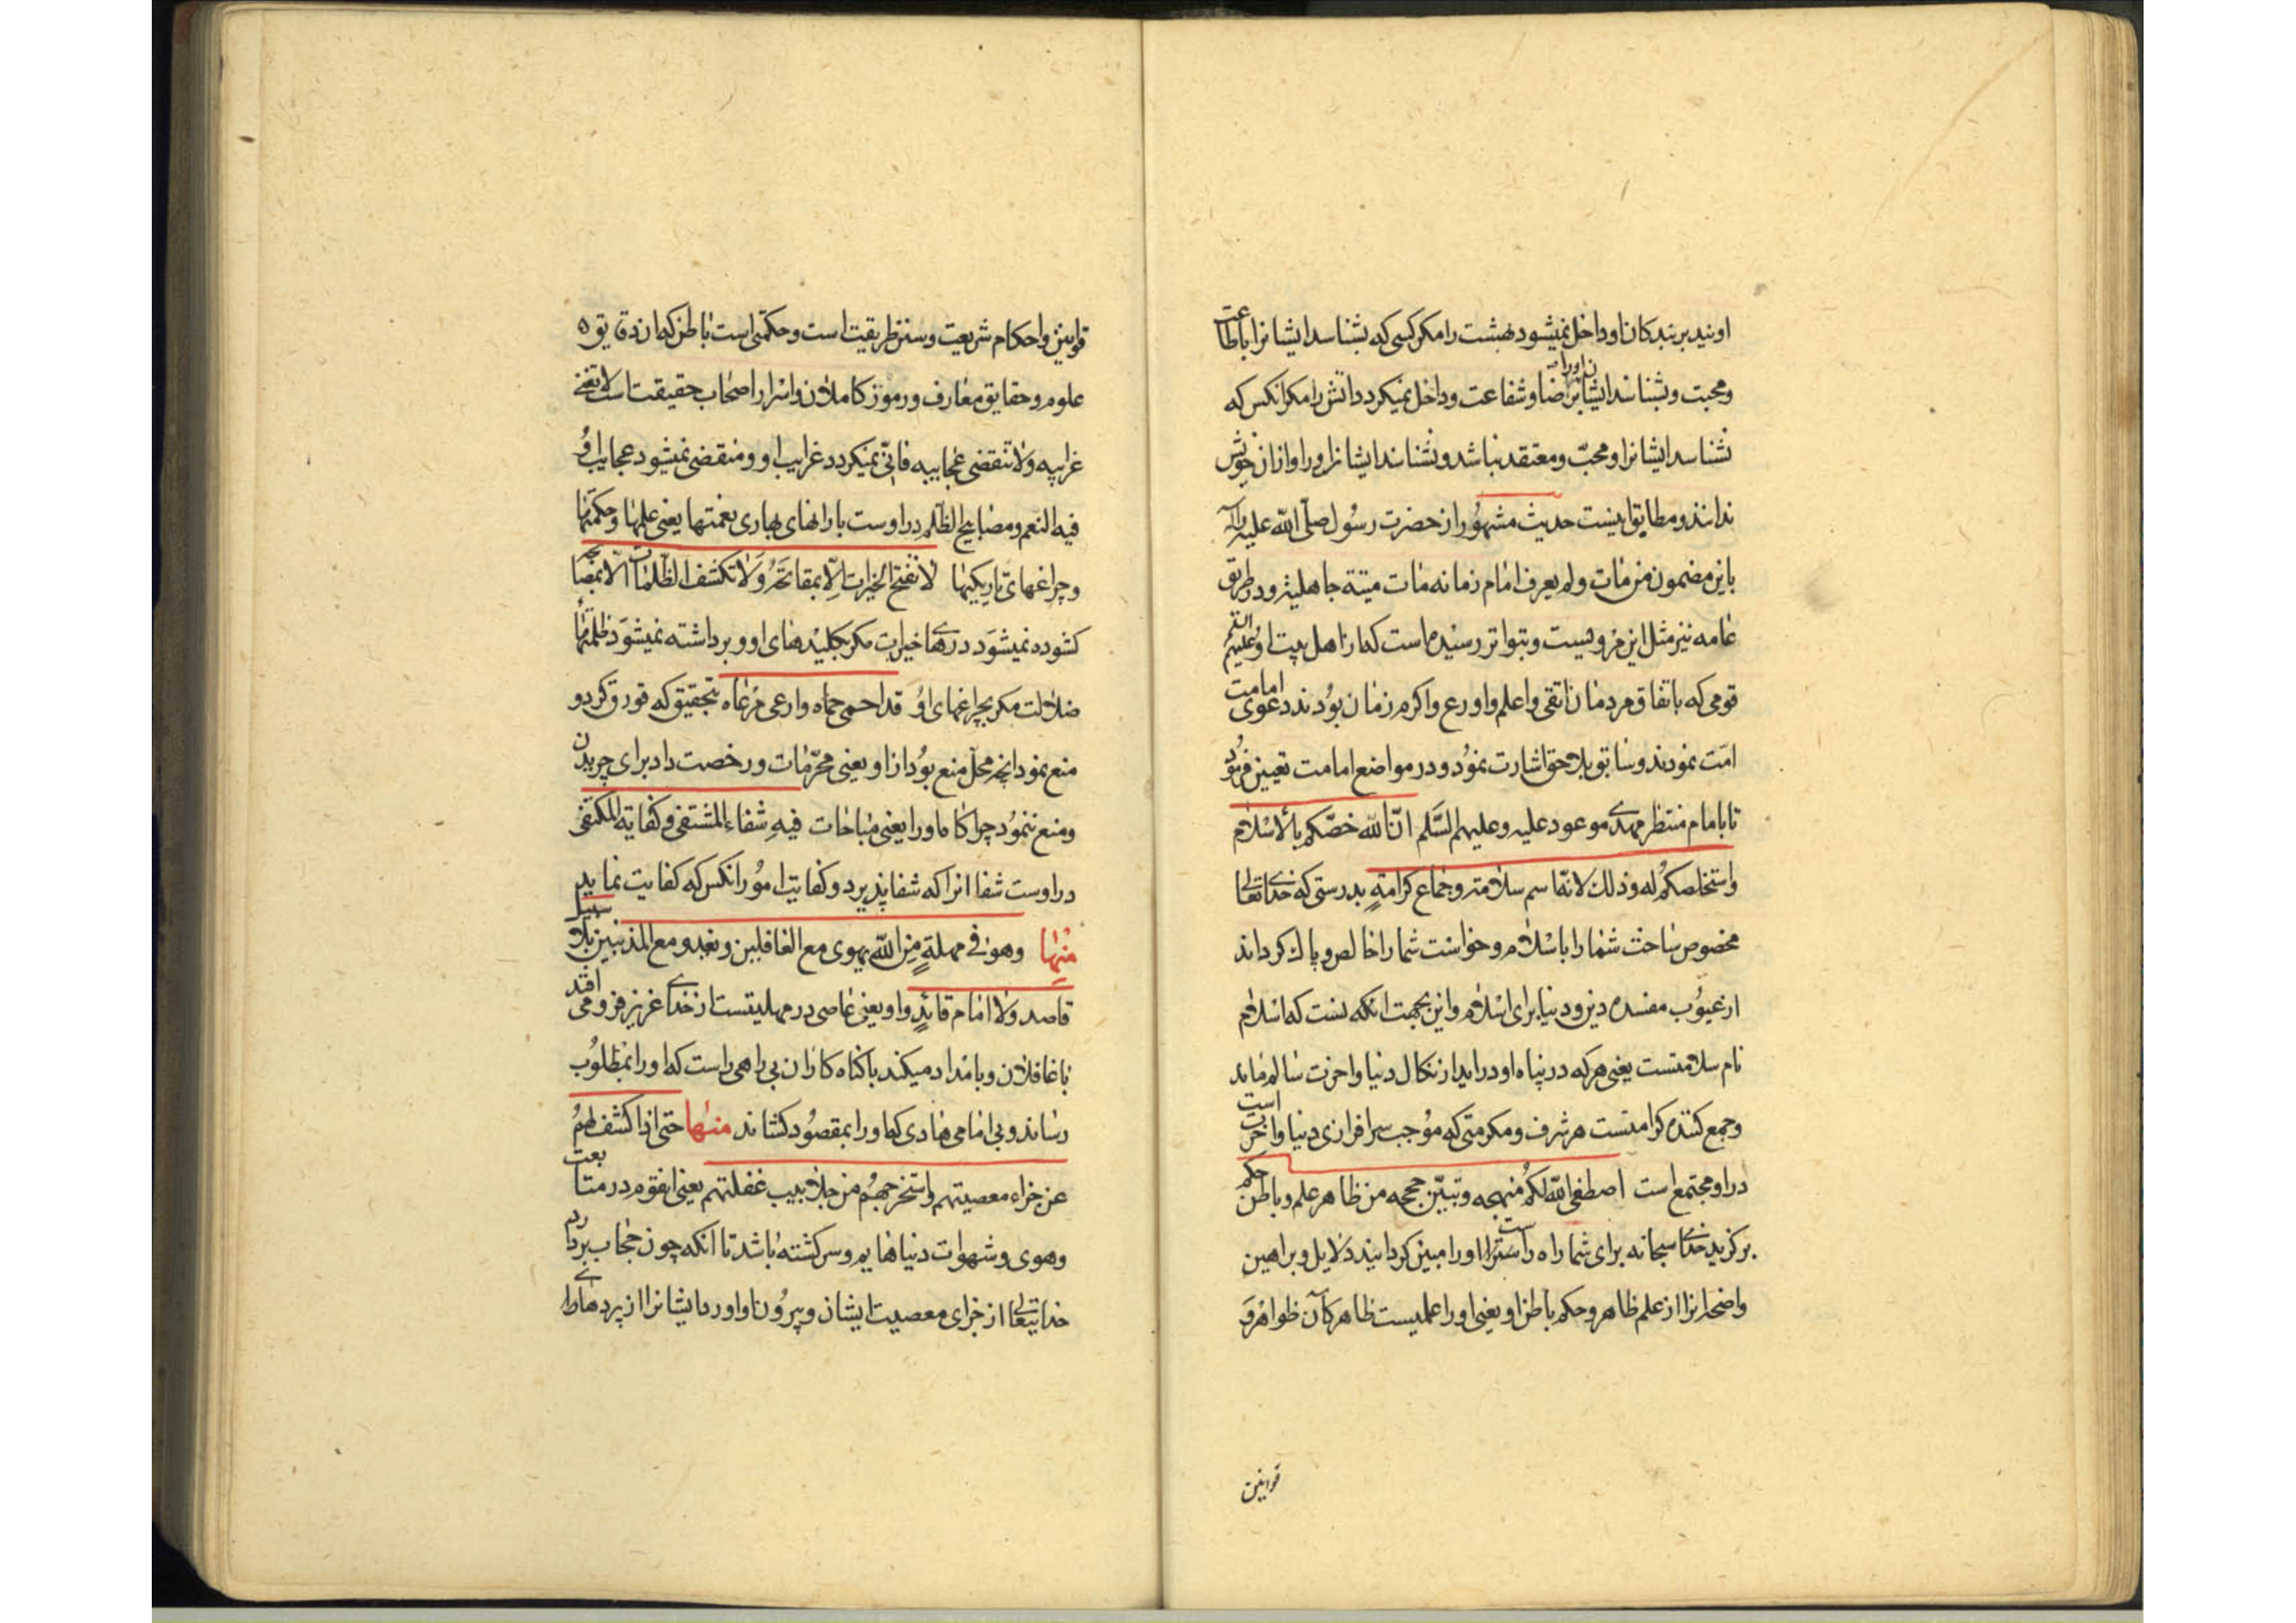 اویند بر بندکان او داخل نمیشود بهشت را مکر کسی که بشناسد ایشانرا باطاعت
ومحبت وبشناسند ایشان اورا برضا وشفاعت وداخل نمیکردد اتش را مکر انکس که
نشناسد ایشانرا ومحبّ ومعتقد نباشد ونشناسند ایشانرا ورا واز ان خویش
ندانند ومطابق اینست حدیث مشهور از حضرت رسول صلّی الله علیه واله
باین مضمون من مات ولم یعرف امام زمانه مات میتة جاهلیة ودر طریق
عامه نیز مثل این مرویست وبتواتر رسیده است که از اهل بیت او علیهم السّلم
قومی که باتفاق مردمان اتقی واعلم واورع واکرم زمان بودند دعوی امامت
امّت نمودند وسابق بلاحق اشارت نمود ودر مواضع امامت تعیین فرمود
تا بامام منتظر مهدی موعود علیه وعلیهم السّلم انّ الله خصّکم بالاسلام
واستخلصکم له وذلك لانّه اسم سلامة وجماع کرامةٍ بدرستی که خدای تعالی
مخصوص ساخت شما را باسلام وخواست شما را خالص وپاك کرداند
از عیوب مفسده دین ودنیا برای اسلام واین بجهت انکه است که اسلام
نام سلامتست یعنی هرکه در پناه او در اید از نکال دنیا واخرت سالم ماند
وجمع کننده کرامتست هر شرف ومکرمتی که موجب سرافرازی دنیا واخرت است
در او مجتمع است اصطفی الله لکم منهجه وتبیّن حججه من ظاهر علم وباطن حکم
برکزید خدای سبحانه برای شما راه راست را او را مبین کردانید دلایل وبراهین
واضحه انرا از علم ظاهر وحکم باطن او یعنی او را علمیست ظاهر که آن ظواهر و
قوانین
قوانین واحکام شریعت وسنن طریقیت است وحکمتی است باطن که ان دقایق
علوم وحقایق معارف ورموز کاملان واسرار اصحاب حقیقت است لا تفنی
غرایبه ولا تنقضی عجایبه فانی نمیکردد غرایب او ومنقضی نمیشود عجایب او
فیه النعم ومصابیح الظلم در اوست بارانهای بهاری نعمتها یعنی علمها وحکمتها
وچراغهای تاریکیها لا تفتح الخیرات الّا بمفاتحه ولا تکشف الظلمات الّا بمصابیحه
کشوده نمیشود درهای خیرات مکر بکلیدهای او وبرداشته نمیشود ظلمتهای
ضلالت مکر بچراغهای او قد احمی حماه وارعی مرعاه بتحقیق که قورق کرد و
منع نمود انچه محل منع بود از او یعنی محرّمات ورخصت داد برای چریدن
ومنع ننمود چراکاه او را یعنی مباحات فیه شفاء المشتفی وکفایة المکتفی
در اوست شفا انرا که شفا پذیرد وکفایت امور انکس که کفایت نماید
منها وهو فی مهلةٍ من الله یهوی مع الغافلین ویغدو مع المذنبین بلا سبیل
قاصد ولا امام قائدٍ واو یعنی عاصی در مهلیتست از خدای عزیز فرو می افتد
با غافلان وبامداد میکند با کناه کاران بی راهی راست که او را بمطلوب
رساند وبی امامی هادی که او را بمقصود کشاند منها حتی اذا کشف لهم
عن جزاء معصیتهم واستخرجهم من جلابیب غفلتهم یعنی انقوم در متابعت
وهوی وشهوات دنیا هایم وسرکشته باشد تا انکه چون حجاب بردارد
خدایتعالی از جزای معصیت ایشان وبیرون اورد ایشانرا از پردهای